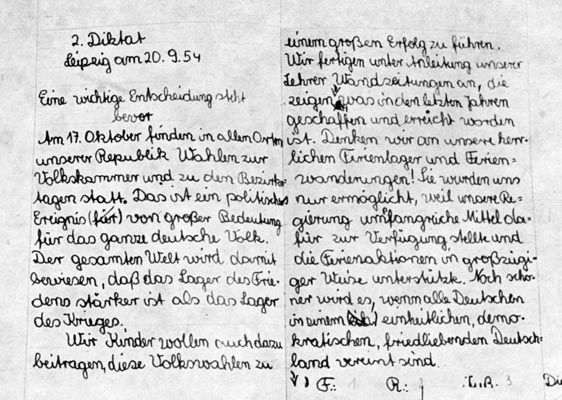 2. Diktat
Leipzig am 20.9.54
Eine wichtige Entscheidung steht
bevor
Am 17. Oktober finden in allen Orten
unserer Republik Wahlen zur
Volkskammer und zu den Bezirks-
tagen statt. Das ist ein politisches
Ereignis (für) von großer Bedeutung
für das ganze deutsche Volk.
Der gesamten Welt wird damit
bewiesen, daß das Lager des Frie-
dens stärker ist als das Lager
des Krieges.
Wir Kinder wollen auch dazu
beitragen, diese Volkswahlen zu
einem großen Erfolg zu führen.
Wir fertigen unter Anleitung unserer
Lehrer Wandzeitungen an, die
zeigen, was in den letzten Jahren
geschaffen und erreicht worden
ist. Denken wir an unsere herr-
lichen Ferienlager und Ferien=
wanderungen! Sie wurden uns
nur ermöglicht, weil unsere Re=
gierung umfangreiche Mittel da=
für zur Verfügung stellte und
die Ferienaktionen in großzügi-
ger Weise unterstützte. Noch schö-
ner wird es, wenn alle Deutschen
in einem einheitlichen, demo-
kratischen, friedliebenden Deutsch-
land vereint sind.
F.: 1 R.: